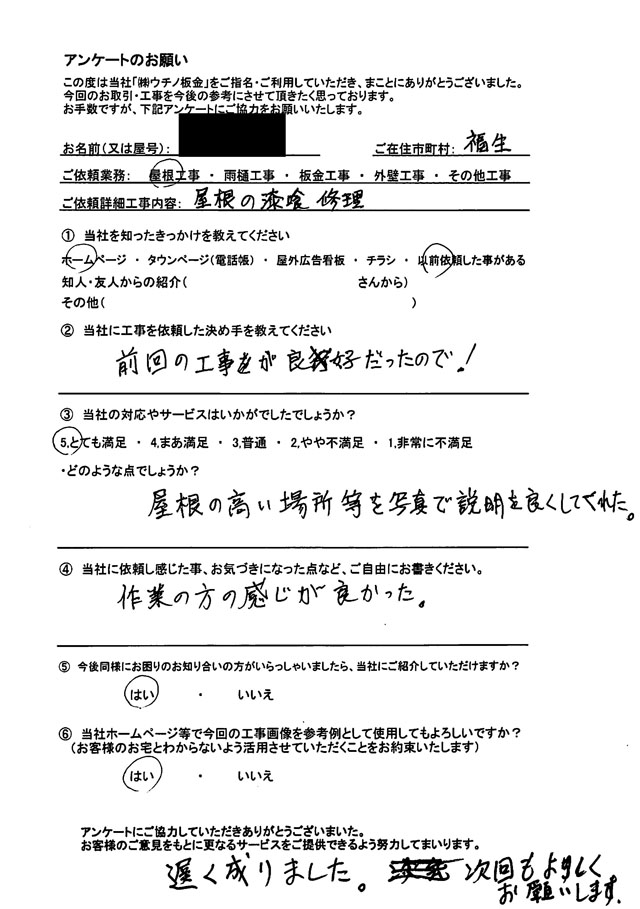 アンケートのお願い
この度は当社「㈱ウチノ板金」をご指名・ご利用していただき、まことにありがとうございました。
今回のお取引・工事を今後の参考にさせて頂きたく思っております。
お手数ですが、下記アンケートにご協力をお願いいたします。
お名前(又は屋号): ご在住市町村: 福生
ご依頼業務: 屋根工事 ・ 雨樋工事 ・ 板金工事 ・ 外壁工事 ・ その他工事
ご依頼詳細工事内容: 屋根の漆喰修理
① 当社を知ったきっかけを教えてください
ホームページ ・ タウンページ(電話帳) ・ 屋外広告看板 ・ チラシ ・ 以前依頼した事がある
知人・友人からの紹介( さんから)
その他( )
② 当社に工事を依頼した決め手を教えてください
前回の工事が良好だったので!
③ 当社の対応やサービスはいかがでしたでしょうか?
5,とても満足 ・ 4,まあ満足 ・ 3,普通 ・ 2,やや不満足 ・ 1,非常に不満足
・どのような点でしょうか?
屋根の高い場所等を写真で説明を良くしてくれた。
④ 当社に依頼し感じた事、お気づきになった点など、ご自由にお書きください。
作業の方の感じが良かった。
⑤ 今後同様にお困りのお知り合いの方がいらっしゃいましたら、当社にご紹介していただけますか?
はい ・ いいえ
⑥ 当社ホームページ等で今回の工事画像を参考例として使用してもよろしいですか?
(お客様のお宅とわからないよう活用させていただくことをお約束いたします)
はい ・ いいえ
アンケートにご協力していただきありがとうございまいた。
お客様のご意見をもとに更なるサービスをご提供できるよう努力してまいります。
遅く成りました。 次回もよろしく
お願いします.